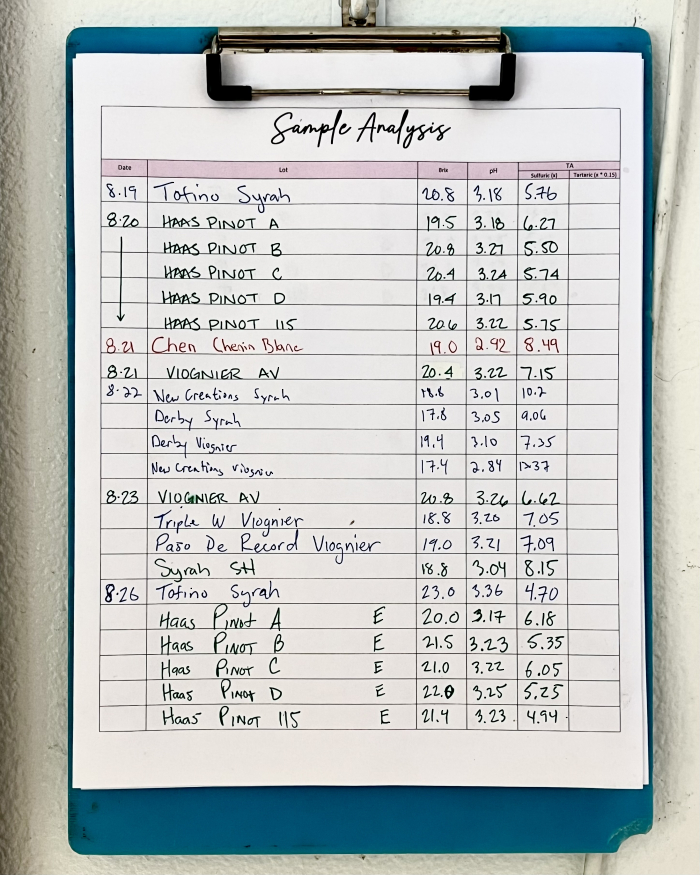 Sample Analysis
Date Lot Brix pH TA
Sulfuric (x) Tartaric (x * 0.15)
8.19 Tofino Syrah 20.8 3.18 5.76
8.20 HAAS PINOT A 19.5 3.18 6.27
HAAS PINOT B 20.8 3.27 5.50
HAAS PINOT C 20.4 3.24 5.74
HAAS PINOT D 19.4 3.17 5.90
HAAS PINOT 115 20.6 3.22 5.75
8.21 Chen Chenin Blanc 19.0 2.92 8.49
8.21 VIOGNIER AV 20.4 3.22 7.15
8.22 New Creations Syrah 18.8 3.01 10.2
Derby Syrah 17.8 3.05 9.06
Derby Viognier 19.4 3.10 7.35
New Creations Viognier 17.4 2.84
8.23 VIOGNIER AV 20.8 3.26 6.62
Triple W Viognier 18.8 3.20 7.05
Paso De Record Viognier 19.0 3.21 7.09
Syrah SH 18.8 3.04 8.15
8.26 Tofino Syrah 23.0 3.36 4.70
Haas PINOT A E 20.0 3.17 6.18
Haas PINOT B E 21.5 3.23 5.35
Haas PINOT C E 21.0 3.22 6.05
Haas PINOT D E 22.0 3.25 5.25
Haas PINOT 115 E 21.4 3.23 4.94